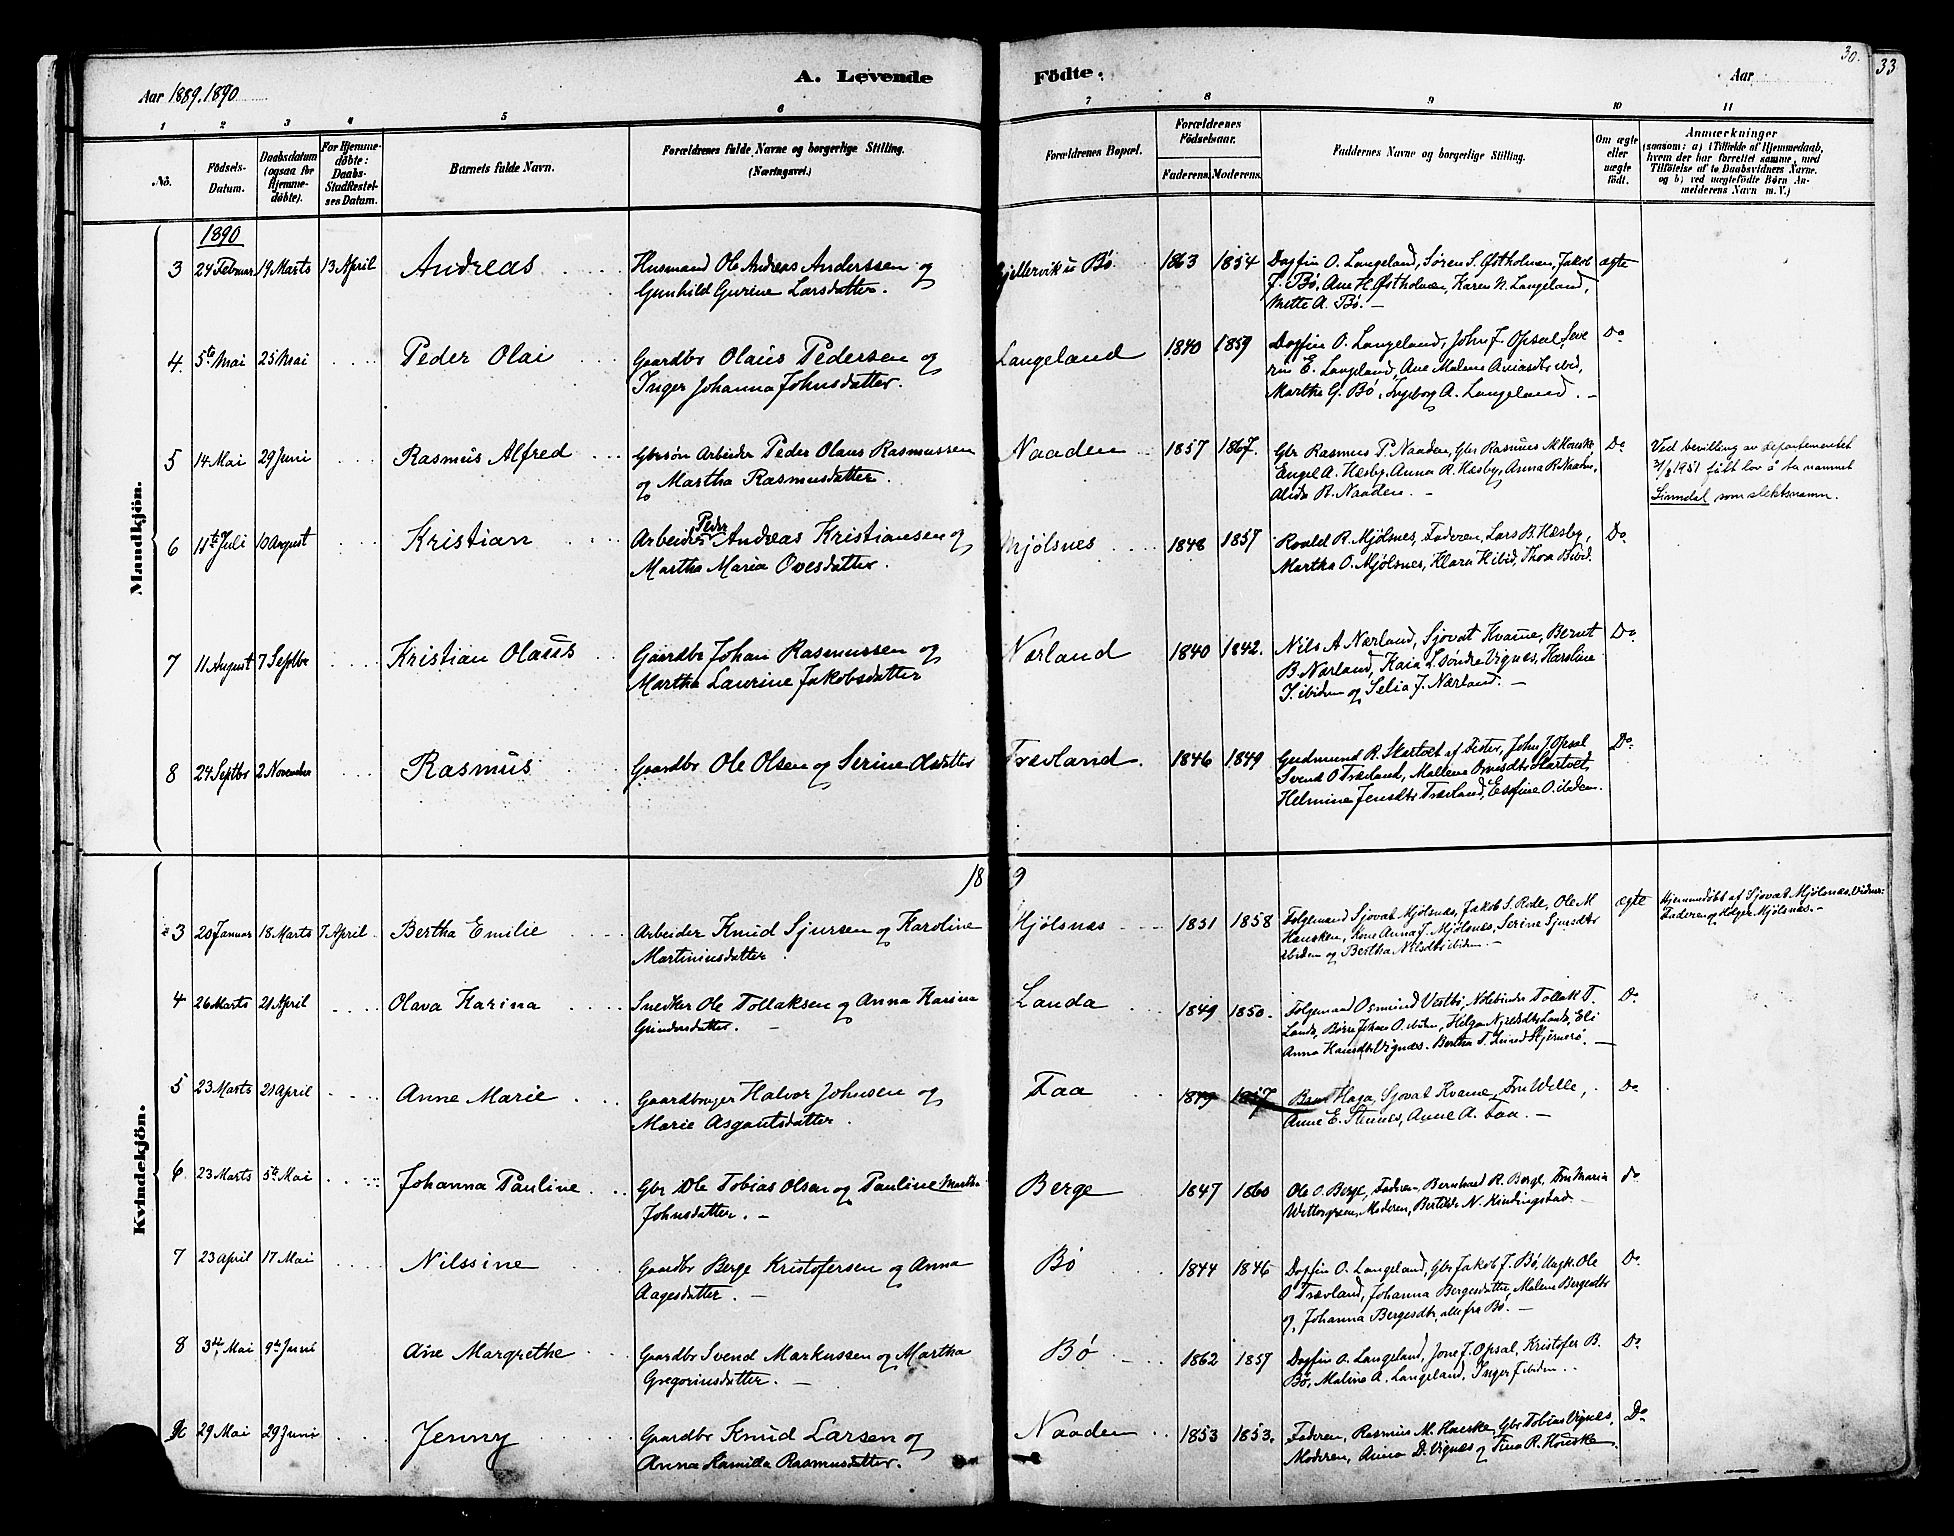 30.
33
Aar 1889.1890
A. Levende
Födte.
Aar
1 2 3 4 5 6 7 8 9 10 11
No.
Födsels-Datum.
Daabsdatum (ogsaa for Hjemmedøbte).
For Hjemmedøbte: Daabs-Stadfestelses Datum.
Barnets fulde Navn.
Forældrenes fulde Navne og borgerlige Stilling. (Næringsvei.)
Forældrenes Bopæl.
Forældrenes Födselsaar.
Faderens. Moderens.
Faddernes Navne og borgerlige Stilling.
Om ægte eller uægte født.
Anmærkninger
(saasom: a) i Tilfælde af Hjemmedaab, hvem der har forrettet samme, med Tilföielse af to Daabsvidners Navne, og b) ved uægtefödte Börn Anmelderens Navn m. V.)
Mandkjön.
1890
3 24 Februar 19 Marts 13 April Andreas Husmand Ole Andreas Anderssen og Bø 1863 1854 Dagfin O. Langeland, Søren S. Østholmen, Jakob ægte
Gunhild Gurine Larsdatter. J. Bø, Ane H. Østholmen, Karen N. Langeland,
Mette A. Bø. -
4. 5te Mai 25 Mai Peder Olai Gaardbr Olaus Pedersen og Langeland 1840 1859 Dagfin O. Langeland, John J. Opsal, Seve Do
Inger Johanna Johnsdatter. rin E. Langeland, Ane Malene ibid,
Martha G. Bø, Ingeborg A. Langeland. -
5 14 Mai 29 Juni Rasmus Alfred Gbrsøn Arbeider Peder Olaus Rasmussen Naaden 1857 1867. Gbr Rasmus P. Naaden, Gbr Rasmus M. Hauske Do Ved bevilling av departementet
og Martha Rasmusdatter. Engel A. Hæsby, Anna R. Hæsby, Anna R. Naaden, 1951 fått lov å ta namnet
Alida R. Naaden. - som slektsnamn.
6 11te Juli 10 August Kristian Arbeider Peder Andreas Kristiansen og Mjølsnes 1848 1857 Roald R. Mjølsnes, Faderen, Lars B. Hæsby, Do
Martha Maria Ovesdatter. Martha O. Mjølsnes, Klara H ibid, Thora B ibid.
7 11 August 7 Septbr Kristian Olaus Gaardbr Johan Rasmussen og Nærland 1840 1842. Nils A Nærland, Sjovat Kvame, Bernt Do
Martha Laurine Jakobsdatter B. Nærland, Kaia L. søndre Vignes, Karoline
ibidem og Selia J. Nærland. -
8 24 Septbr 2 November Rasmus Gaardbr Ole Olsen og Serine Olsdatter Trævland. 1846 1849 Gudmund R. Skartvet af Fister, John J Opsal Do
Svend O Trævland, Mallene Skartvet,
Helmine Jensdtr Trævland, O. ibidem.
Kvindekjön.
18 9
3 20 Januar 18 Marts 7 April Bertha Emilie Arbeider Knud Sjursen og Karoline Mjølsnæs 1851 1858 Følgemand Sjovat Mjølsnæs, Jakob S. Ole M ægte Hjemmedøbt af Sjovat Mjølsnæs, Vidner:
Martiniusdatter Hausken, Kone Anna J. Mjølsnæs, Serine Sjursdtr Faderen og Holger Mjølsnæs. -
ibidem og Bertha Nilsdtr ibidem. -
4 26 Marts 21 April Olava Karina Snedker Ole Tollaksen og Anna Karina Landa 1849 1850. Følgemand Osmund Vestbø, Tollak T. Do
Gundersdatter. - Landa, Børre Johan O. ibidem, Helga Landa, Eli
Anna Hansdtr Vignæs. Bertha T. Hjernerø. -
5 23 Marts 21 April Anne Marie Gaardbruger Halvor Johnsen og Faa 1849 1857 Haga, Sjovat Kvame, Fru Wille, Do
Marie Asgautsdatter. Anne E. Stennes, Anne A. Faa. -
6 23 Marts 5te Mai Johanna Pauline Gbr Ole Tobias Olsen og Pauline Martha Berge 1847 1860 Ole O. Berge, Faderen, Bernhard R. Berge, Fru Maria Do
Johnsdatter. - Moderen, Bertilde N. Kindingstad.
7 23 April 17 Mai Nilssine Gaardbr Berge Kristofersen og Anna Bø 1844 1846 Dagfin O. Langeland, Gbr Jakob J. Bø, Ungk. Ole Do
Aagesdatter. - O Trævland, Johanna Bergesdatter, Malene Bergesdtr
og Johanna Bergesdtr, alle fra Bø. -
8 3die Mai 9de Juni Ane Margrethe Gaardbr Svend Markussen og Martha Bø 1862 1857 Dagfin O. Langeland, Jone J. Opsal, Kristofer B. Do
Gregoriusdatter. - Bø, Maline A. Langeland, Inger J ibidem.
9 29 Mai 29 Juni Jenny Gaardbr Knud Larsen og Naaden 1853 1853. Faderen, Rasmus M. Hauske, Gbr Tobias Vignæs, Do
Anna Kamilla Rasmusdatter. Moderen, Anna D. Vignæs og Tina R. Hauske